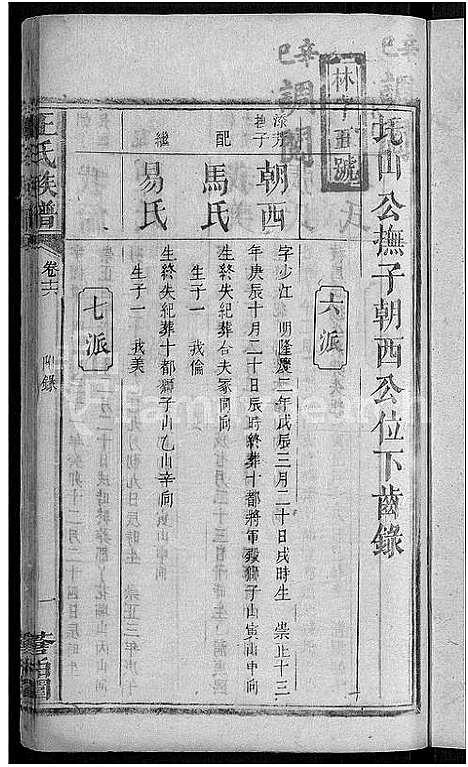 氏山公撫子朝西公位下齒錄
六派
朝西
字少江 明隆慶二年戊辰三月二十日戌時生 崇正十三
年庚辰十月二十日辰時終葬十都將軍殿獅子山寅山申向
配 馬氏
生終失紀葬合夫冢同向
生子一 我倫
繼 易氏
生終失紀葬十都獅子山乙山辛向
生子一 我美
七派
氏族譜
卷六
附錄
一